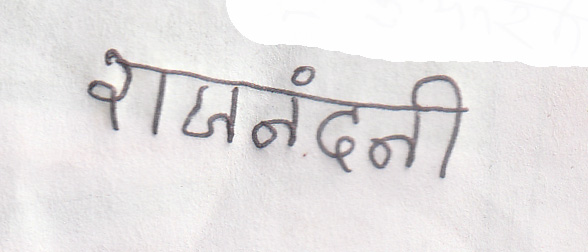 राजनंदनी